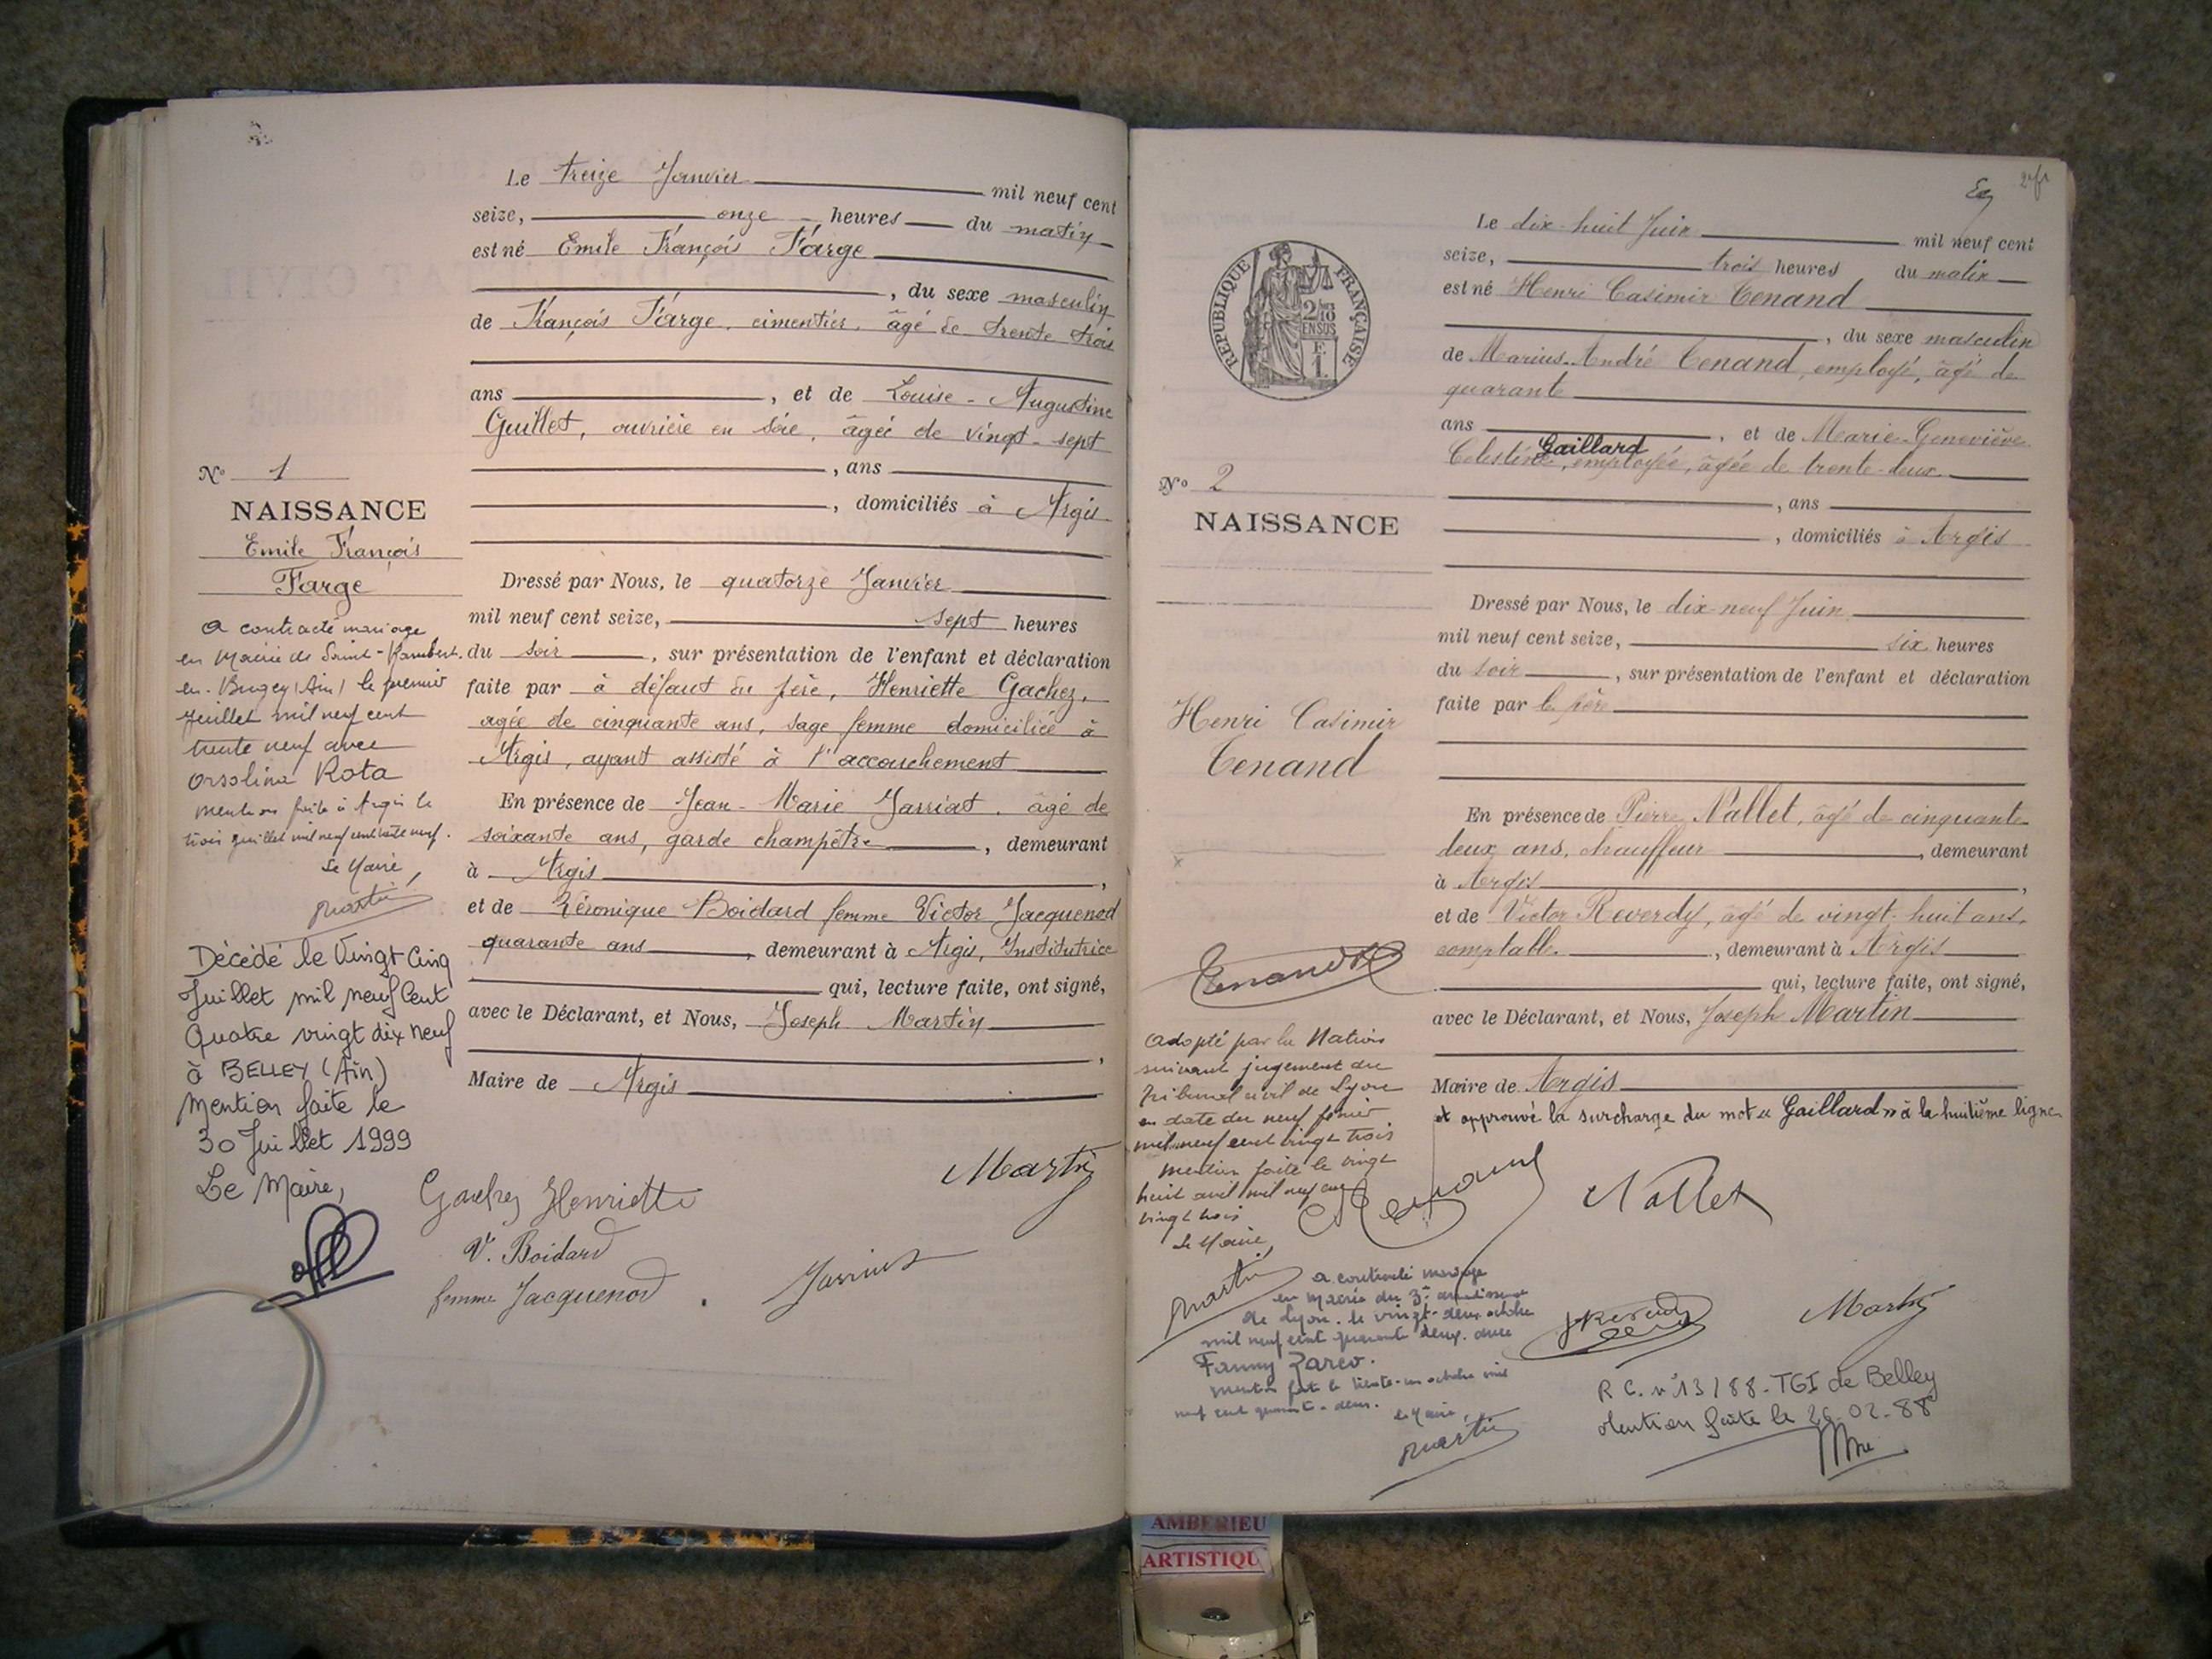 Le treize Janvier mil neuf cent
seize, onze heures du matin
est né Emile François Farge
, du sexe masculin
de François Farge, cimentier, âgé de trente trois
ans , et de Louise-Augustine
Guillet, ouvrière en soie, âgée de vingt-sept
, ans
, domiciliés à Argis
N° 1
NAISSANCE
Emile François
Farge
Dressé par Nous, le quatorze Janvier
mil neuf cent seize, sept heures
du soir , sur présentation de l'enfant et déclaration
faite par à défaut du père, Henriette Gachez,
agée de cinquante ans, sage femme domiciliée à
Argis, ayant assisté à l'accouchement
En présence de Jean-Marie Jarriat, âgé de
soixante ans, garde champêtre , demeurant
à Argis ,
et de Véronique Boidard femme Victor Jacquenod
quarante ans , demeurant à Argis, Institutrice
qui, lecture faite, ont signé,
avec le Déclarant, et Nous, Joseph Martin
,
Maire de Argis
a contracté mariage
en Mairie de Saint-Rambert
en-Bugey (Ain) le premier
Juillet mil neuf cent
trente neuf avec
Orsolina Rota
mention faite à Argis le
trois juillet mil neuf cent trente neuf.
Le Maire,
Martin
Décédé le Vingt Cinq
Juillet mil neuf Cent
Quatre vingt dix neuf
à BELLEY (Ain)
Mention faite le
30 Juillet 1999
Le Maire,
Henriette
V. Boidard
femme Jacquenod
Martin
Le dix-huit Juin mil neuf cent
seize, trois heures du matin
est né Henri Casimir Tenand
, du sexe masculin
de Marius-André Tenand, employé, âgé de
quarante
ans , et de Marie-Geneviève
Célestine Gaillard, employée, âgée de trente-deux
, ans
, domiciliés à Argis
RÉPUBLIQUE FRANÇAISE
2/10
EN SUS
N° 2
NAISSANCE
Henri Casimir
Tenand
Dressé par Nous, le dix-neuf Juin
mil neuf cent seize, six heures
du soir , sur présentation de l'enfant et déclaration
faite par le père
En présence de Pierre Nallet, âgé de cinquante
deux ans, chauffeur , demeurant
à Argis ,
et de Victor Reverdy, âgé de vingt-huit ans,
comptable. , demeurant à Argis
qui, lecture faite, ont signé,
avec le Déclarant, et Nous, Joseph Martin
Maire de Argis
et approuvé la surcharge du mot « Gaillard » à la huitième ligne
Adopté par la Nation
suivant jugement du
Tribunal civil de Lyon
en date du neuf
mil neuf cent vingt trois
Mention faite le vingt
huit avril mil neuf cent
vingt trois
Le Maire,
Martin
Nallet
Martin
a contracté mariage
en Mairie du 3e arrondissement
de Lyon, le vingt-deux octobre
mil neuf cent quarante deux, avec
Fanny Zarev.
Mention faite le trente-un octobre mil
neuf cent quarante-deux.
Le Maire,
Martin
R C. n° 13/88 - TGI de Belley
Mention faite le 26-02-88
AMBERIEU
ARTISTIQU